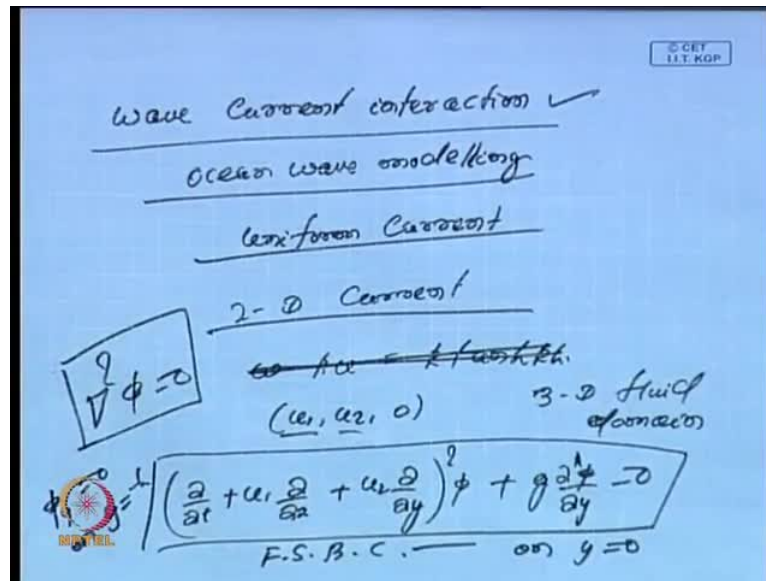 © CET
I.I.T. KGP
Wave Current interaction ✓
Ocean wave modelling
Uniform Current
2-D Current
∇²φ=0
(u₁, u₂, 0)
3-D fluid
domain
(∂/∂t + u₁ ∂/∂x + u₂ ∂/∂y)² φ + g ∂φ/∂y = 0
F.S.B.C. — on y=0
NPTEL